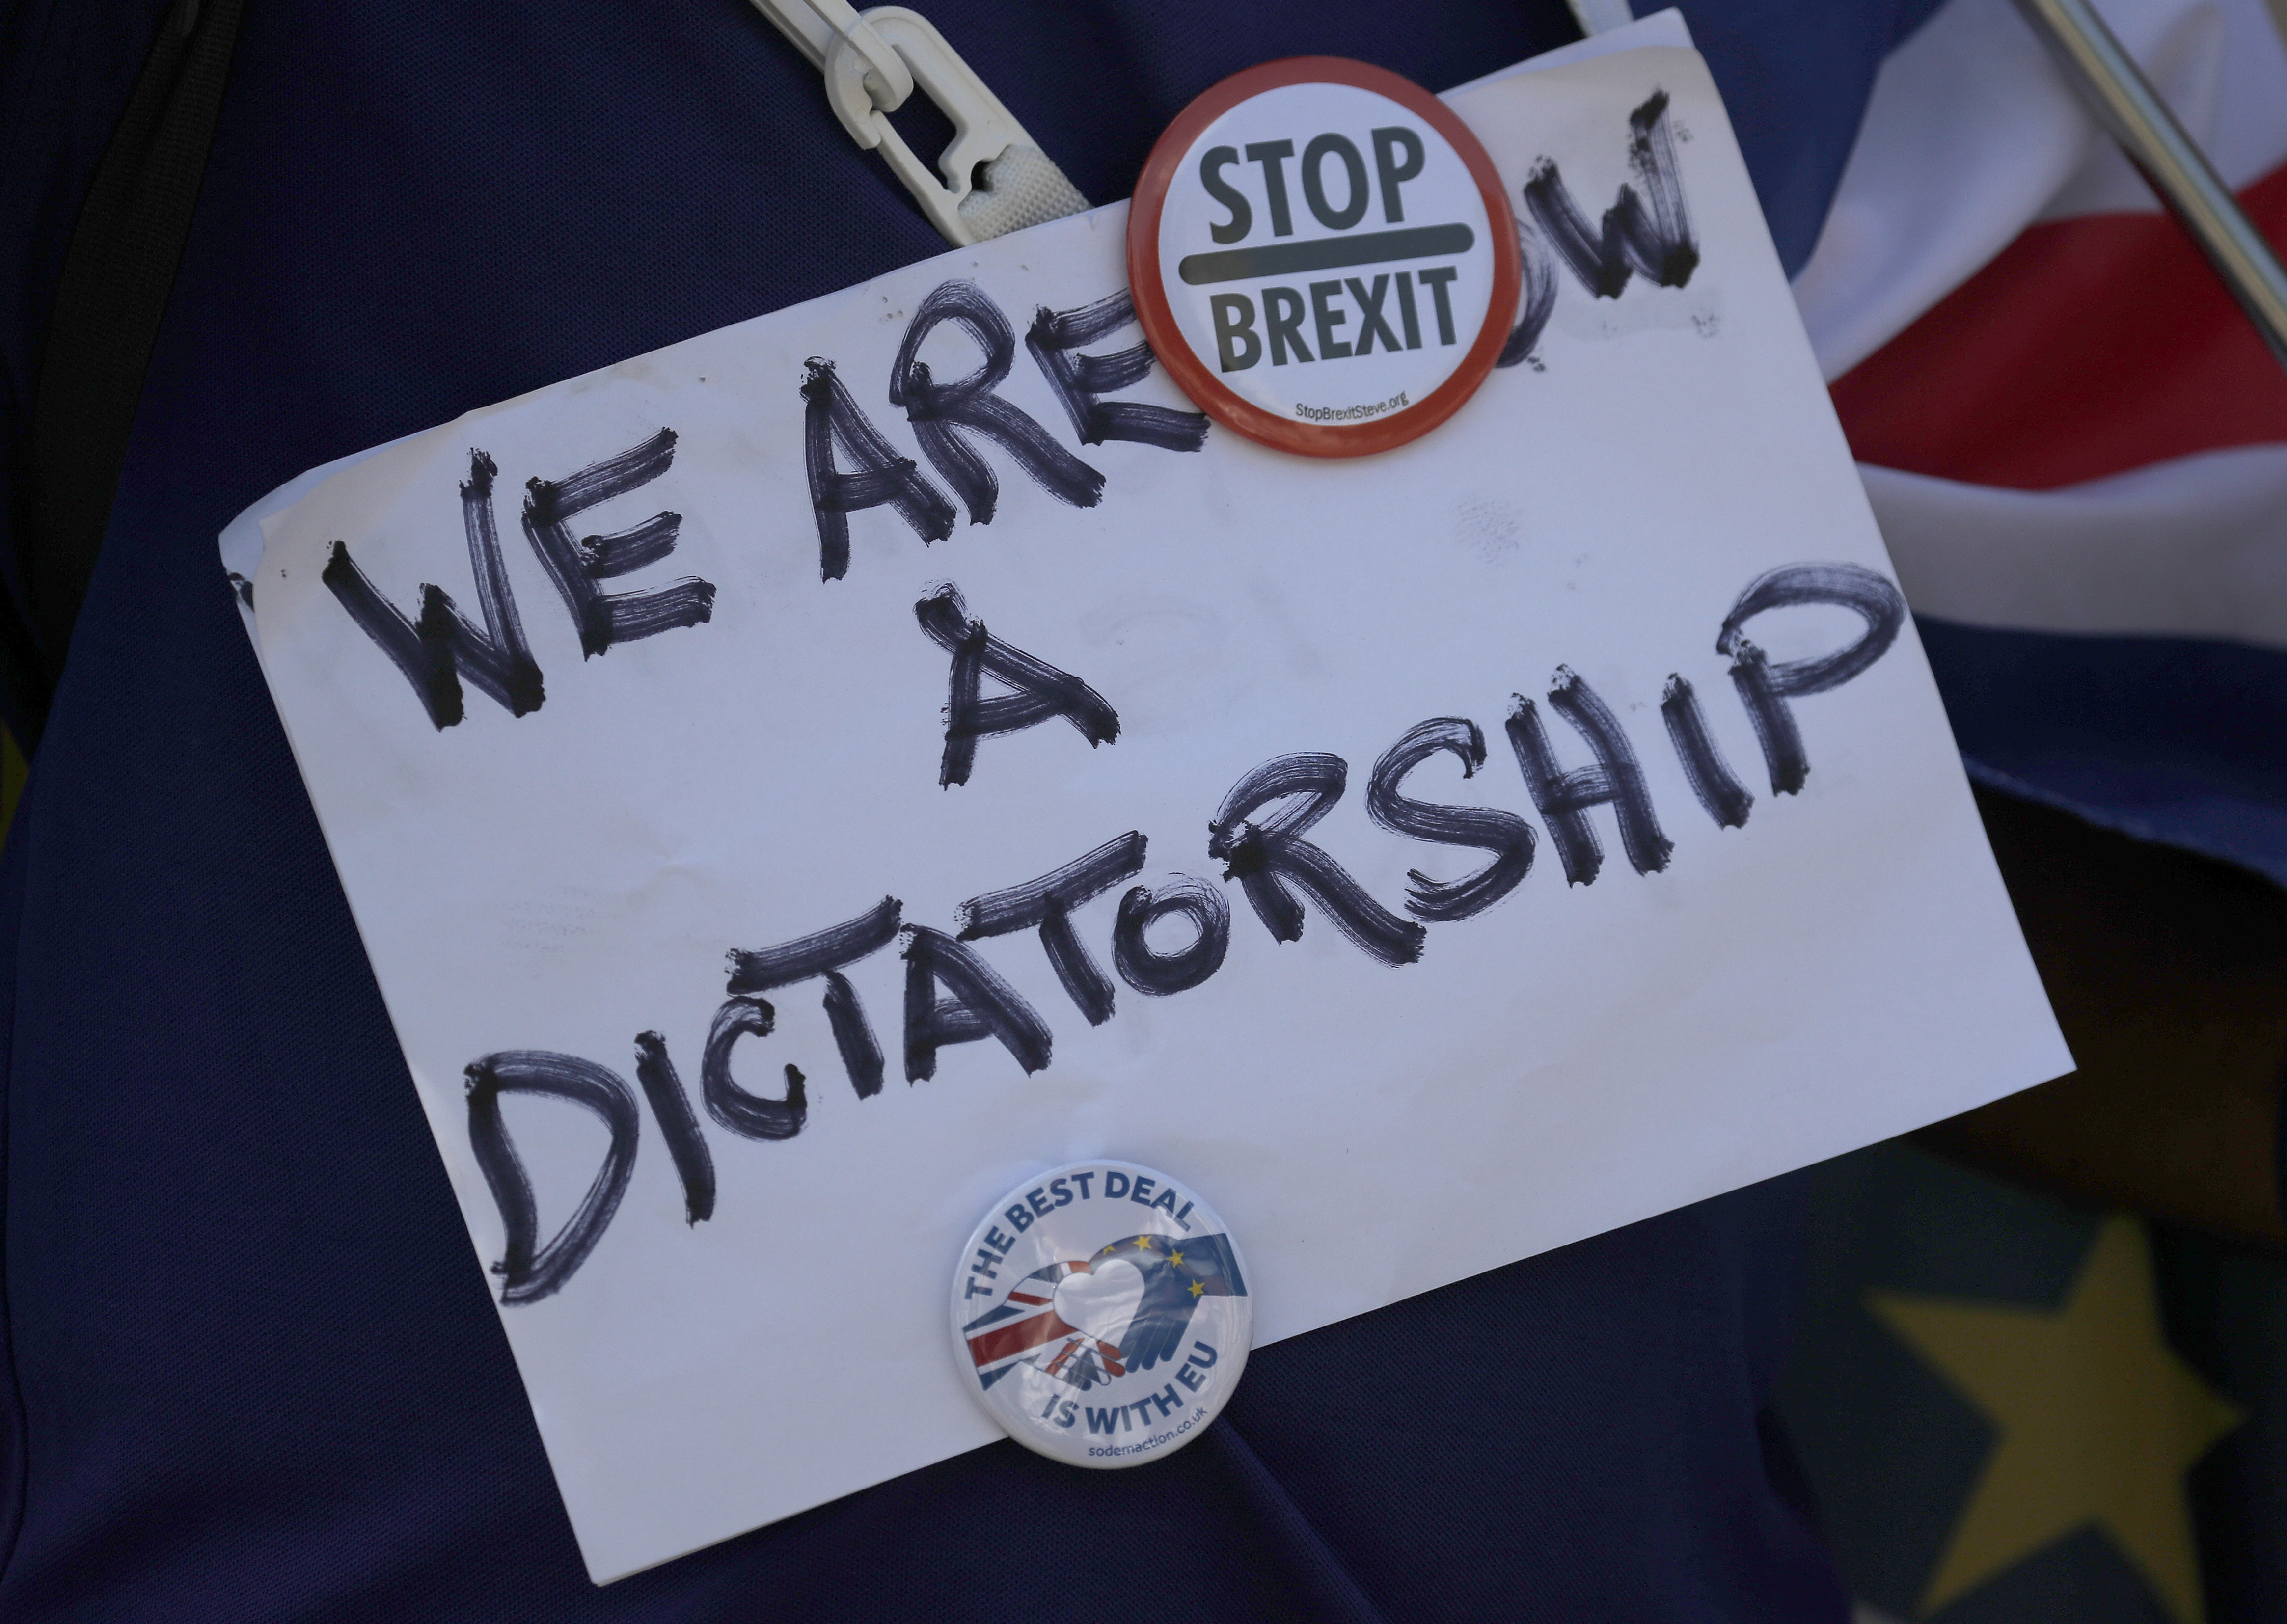 STOP
BREXIT
StopBrexitSteve.org
WE ARE
A
DICTATORSHIP
THE BEST DEAL
IS WITH EU
sodemaction.co.uk